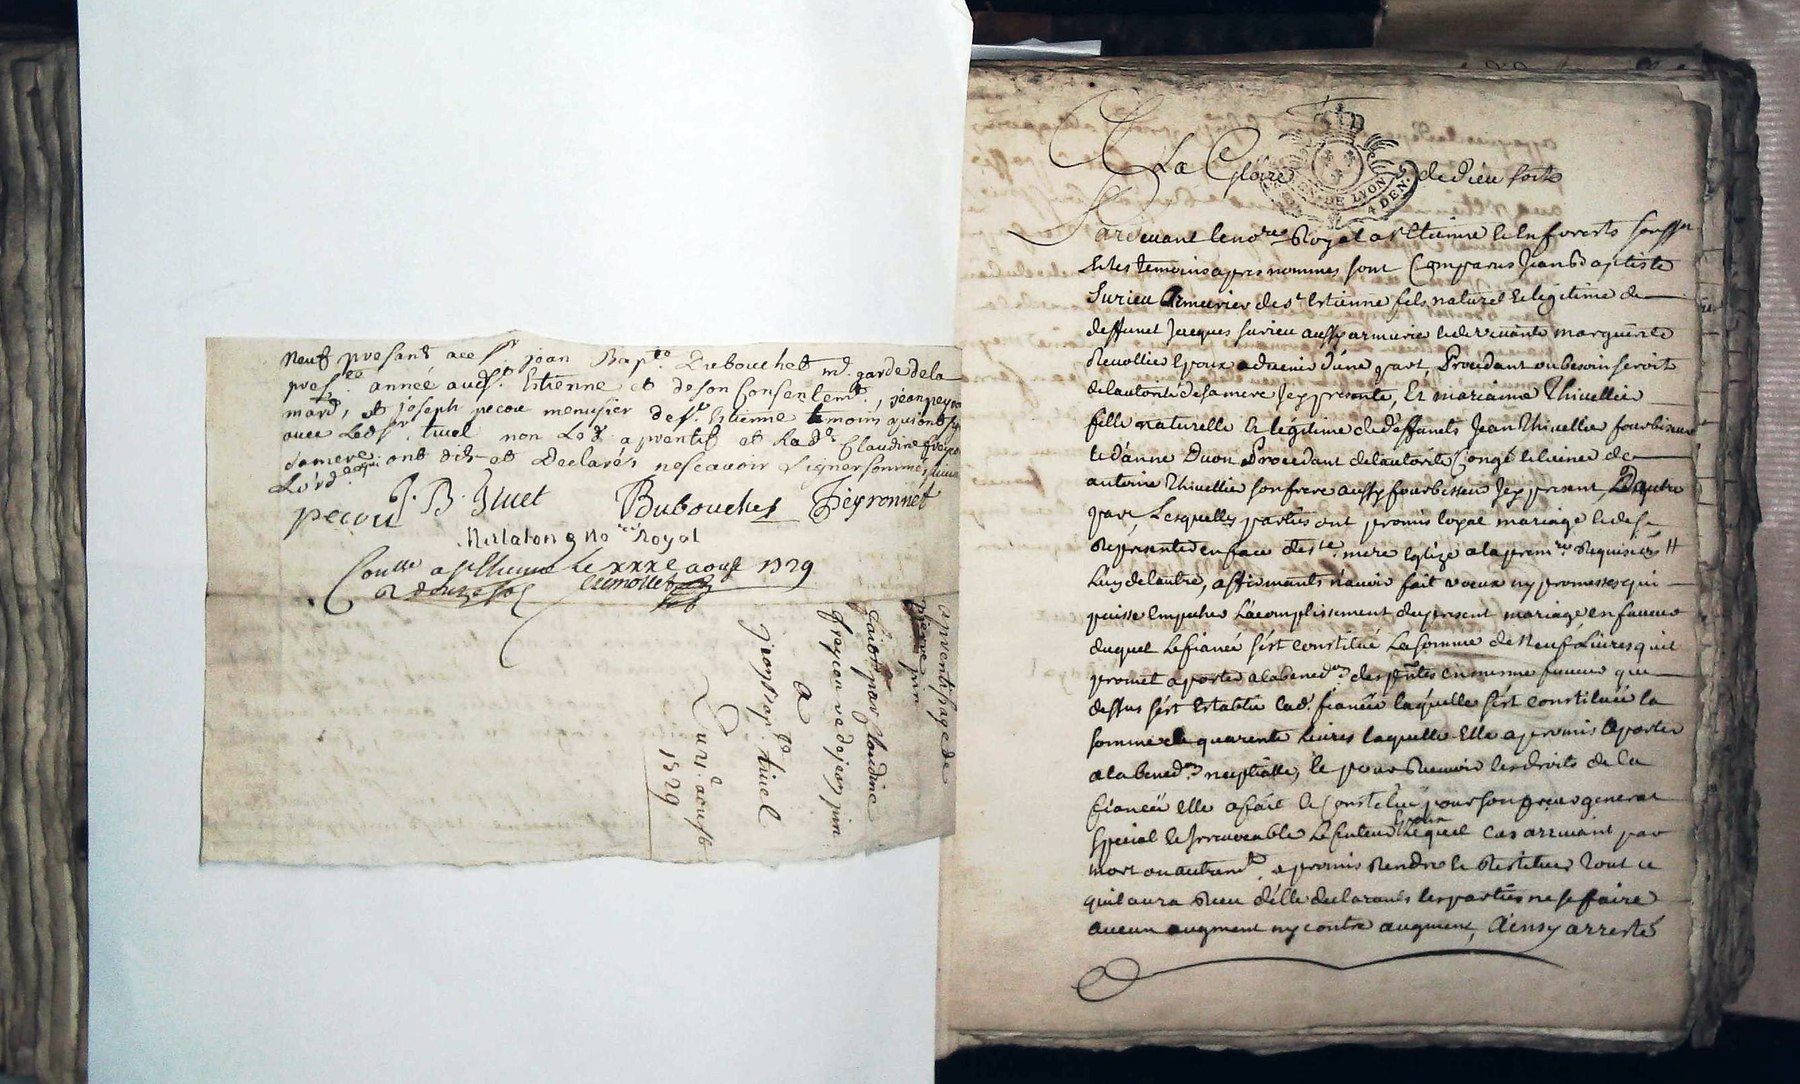 neuf presant a ce sr. jean Bapte Dubouchet md. garde de la
preste année audt. st. Estienne et de son Consentemt., jean peyro
mard, et joseph pecou menusier de st. Estienne temoins qui ont sig
avec led sr. tivel non led. aprentif et lad.e Claudine freyco
sa mere qui ont dit et declarés ne scavoir signer sommés
J. B. Tivet Dubouchet Peyronnet
pecou
No.re Royal
Conlle a st Etienne le xxxe aoust 1729
R douze sols
aprentissage de
pierre pin
fait par Claudine
freycon ve de jean pin
A
jean bap.te tivel
Du xxi.e aoust
1729
A La Gloire de Dieu soit
DE LYON
4 DEN.
Pardevant le no.re Royal a st Etienne le en forests soussne
et les temoins apres nommes sont Comparus Jean Baptiste
Surieu Armurier de st Estienne fils naturel et legitime de
deffunct Jacques surieu aussy armurier et de vivante marguerite
Revollier Epoux advenir d'une part, Procedant ou besoin seroit
de lautorité de sa mere Jcy presente, Et mariaine Thivellier
fille naturelle et legitime de deffuncts Jean Thivellier fourbisseur
et d'anne Duon Procedant de lautorité Congé et licence de
antoine Thivellier son frere aussy fourbisseur Jcy present D'autre
part, Lesquelles parties ont promis loyal mariage et de se
Representer en face de ste. mere Eglize a la prem.re Requisi.on
L'un de lautre, affirmants n'avoir fait voeux ny promesses qui
puisse Empecher L'acomplissement du present mariage, en faveur
duquel Le fiancé s'est constitué La somme de Neuf Livres quil
promet aporter a la bened.on des pntes en mesme faveur que
dessus s'est Establie lad. fiancée laquelle s'est constituée la
somme de quarente Livres laquelle Elle a promis aporter
a la bened.on nuptialle, et pour Recevoir les droits de la
fiancée Elle a fait et Constitué pour son procureur general
special et Irrevocable Le futeur Epoux Lequel cas arrivant par
mort ou autremt. a promis Rendre et Restituer Tout ce
quil aura Receu d'elle declarants les parties ne se faire
aucun augment ny contre augment, Ainsy arresté